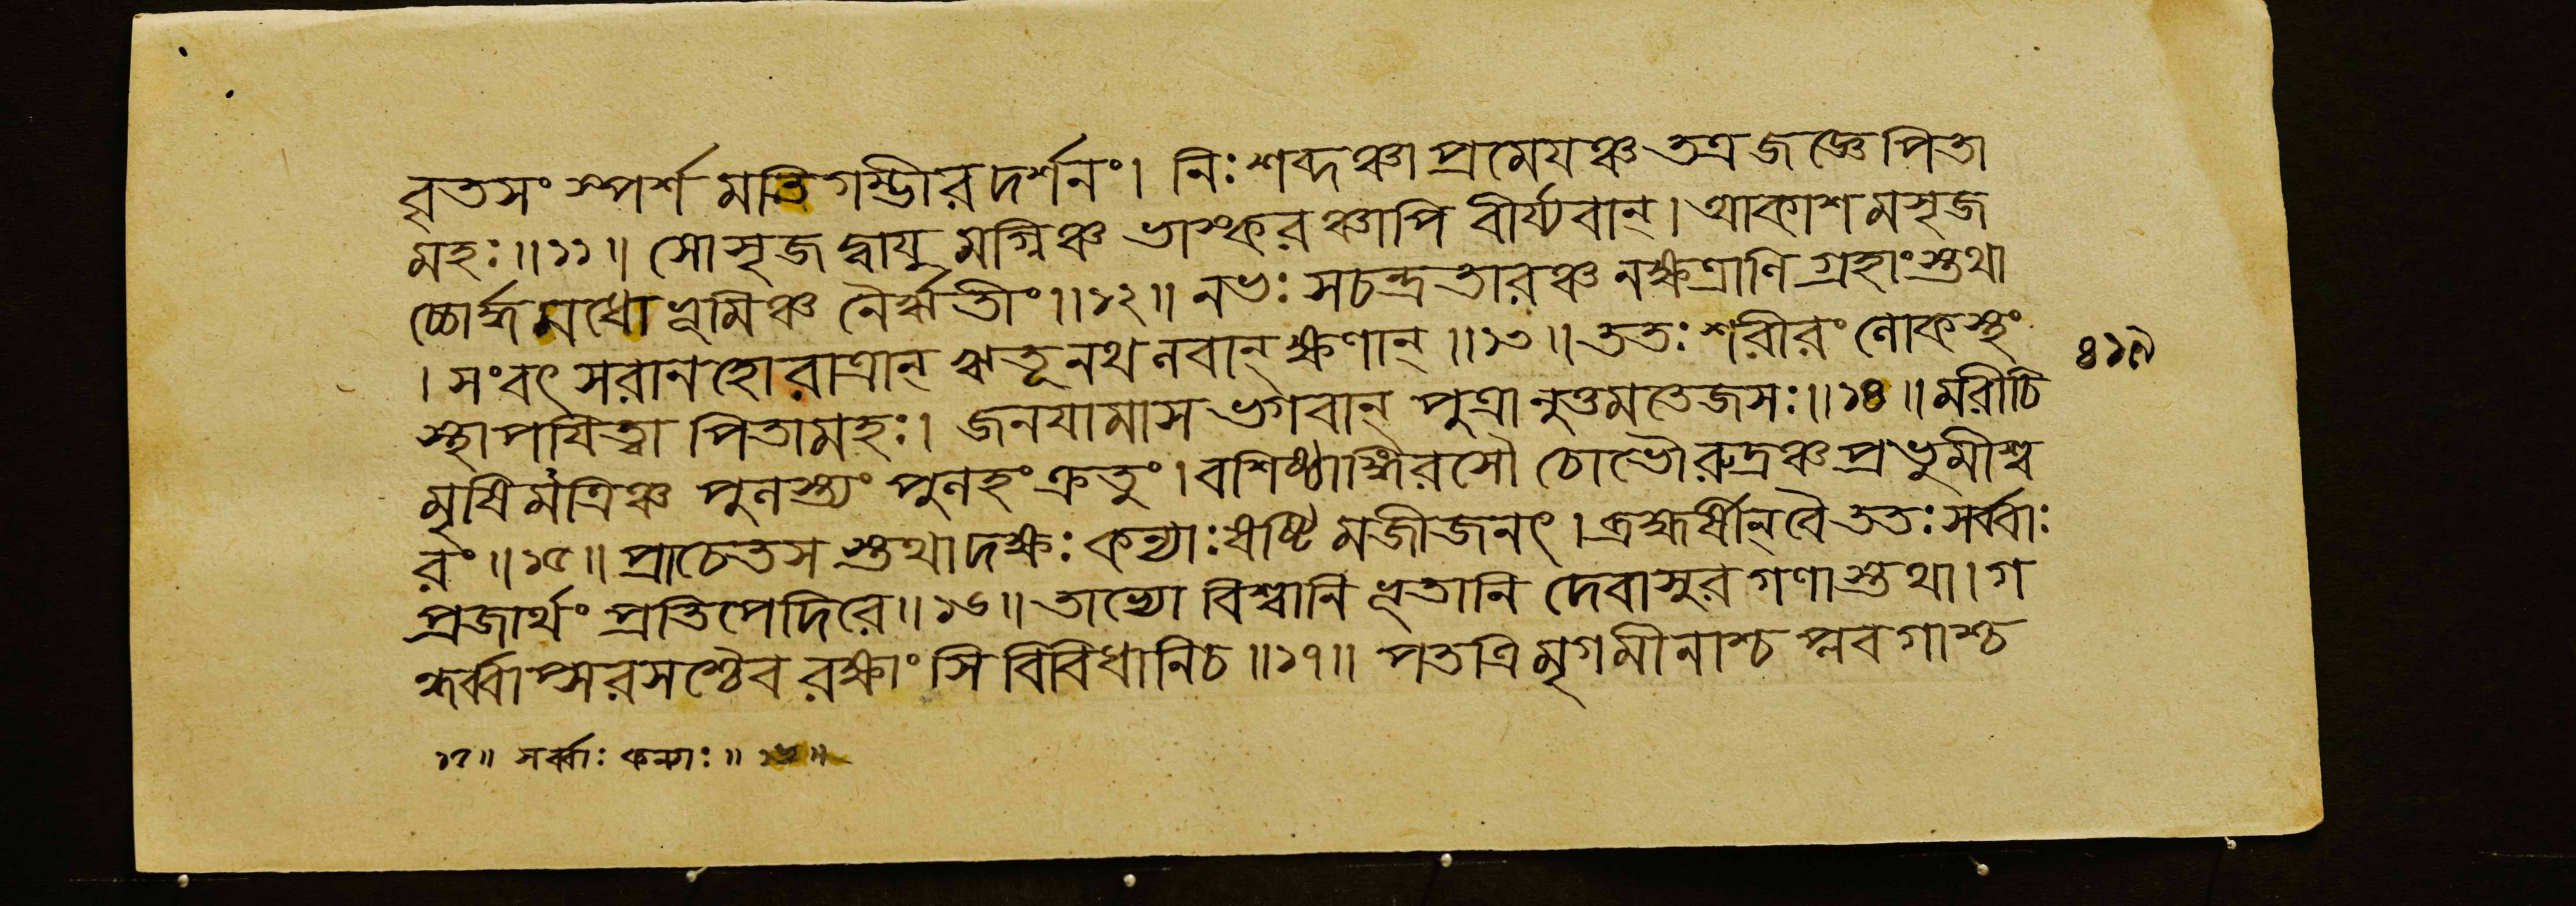 বৃতসংস্পর্শমতিগম্ভীরদর্শনং। নিঃশব্দঞ্চাপ্রমেযঞ্চ তত্র জজ্ঞে পিতা
মহঃ॥১১॥ সোসৃজদ্বাযুমগ্নিঞ্চ ভাস্করঞ্চাপি বীর্য্যবান্। আকাশমসৃজ
চ্চোর্দ্ধমধো ভূমিঞ্চ নৈর্ঋতীং॥১২॥ নভঃ সচন্দ্রতারঞ্চ নক্ষত্রাণি গ্রহাংস্তথা
। সংবৎসরানহোরাত্রান্ ঋতূনথ লবান্ ক্ষণান্॥১৩॥ ততঃ শরীরং লোকস্থং
স্থাপযিত্বা পিতামহঃ। জনযামাস ভগবান্ পুত্রানুত্তমতেজসঃ॥১৪॥ মরীচি
মৃষিমত্রিঞ্চ পুলস্ত্যং পুলহং ক্রতুং। বশিষ্ঠাঙ্গিরসৌ চোভৌ রুদ্রঞ্চ প্রভুমীশ্ব
রং॥১৫॥ প্রাচেতসস্তথা দক্ষঃ কন্যাঃ ষষ্টিমজীজনৎ। ব্রহ্মর্ষীন্ বৈ ততঃ সর্ব্বাঃ
প্রজার্থং প্রতিপেদিরে॥১৬॥ তাভ্যো বিশ্বানি ভূতানি দেবাসুরগণাস্তথা। গ
ন্ধর্ব্বাপ্সরসশ্চৈব রক্ষাংসি বিবিধানি চ॥১৭॥ পতত্রিমৃগমীনাশ্চ প্লবগাশ্চ
৪১৯
১৭॥ সর্ব্বাঃ কন্যাঃ॥১৬॥